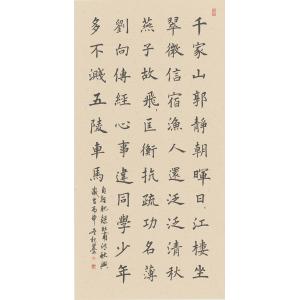 千家山郭靜朝暉日江樓坐
翠微信宿漁人還泛泛清秋
燕子故飛匡衡抗疏功名薄
劉向傳經心事違同學少年
多不濺五陵車馬
自輕肥錄杜甫詩秋興